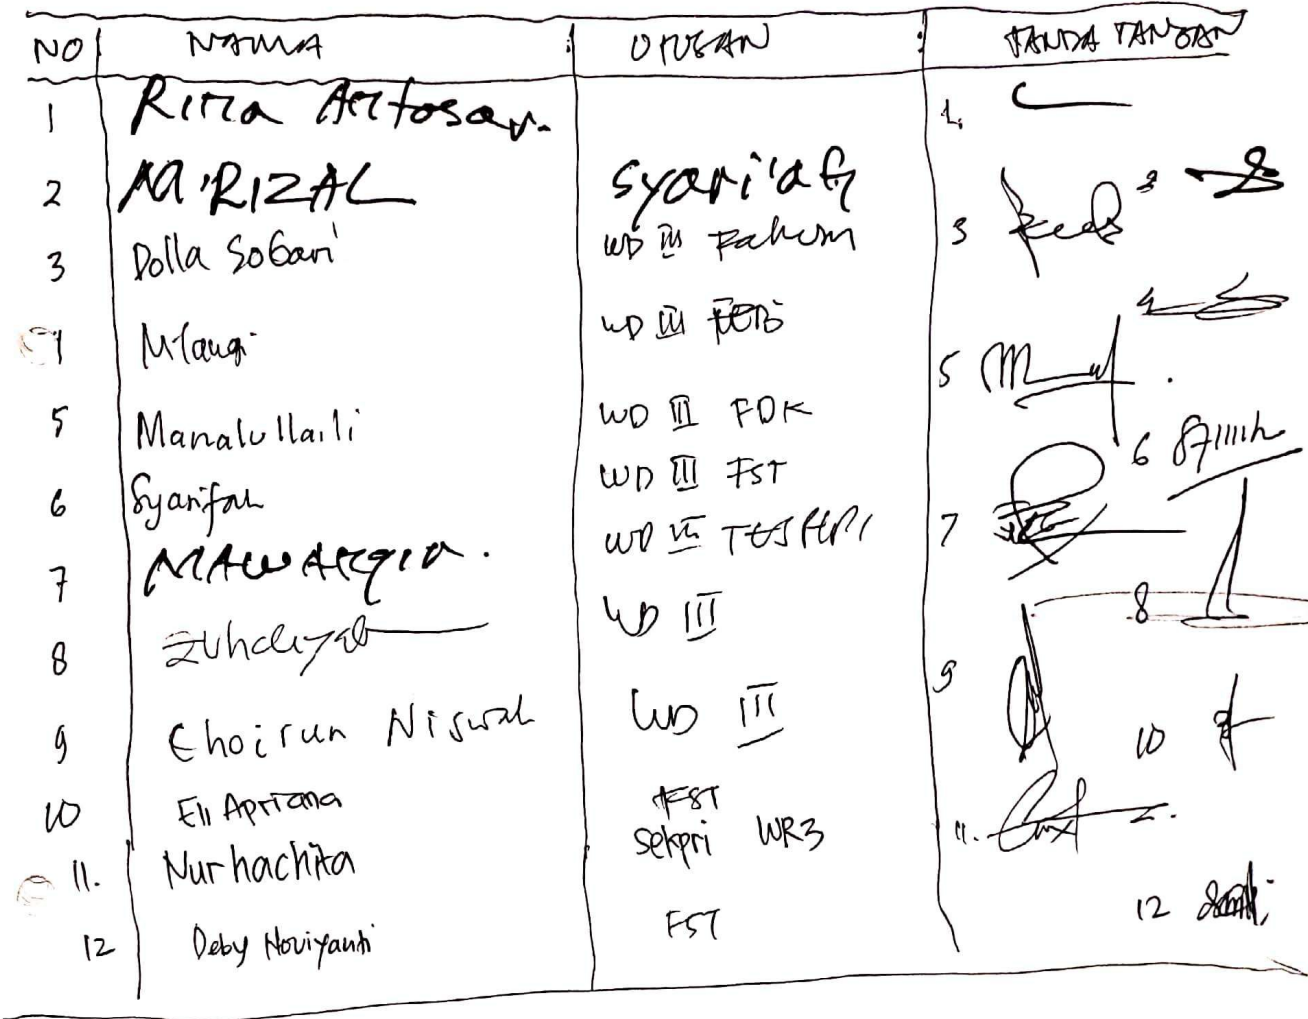 NO NAMA : UTUSAN : TANDA TANGAN
1 Rima Antosari. 1.
2 M. RIZAL Syari'ah 2
3 Dolla Sobari WD III 3
4 WD III FEBI 4
5 Manalullaili WD III FDK 5
6 Syarifah WD III FST 6
7 WD III 7
8 Zuhdiyah WD III 8
9 Choirun Niswah WD III 9
10 Eli Apriana FST 10
11. Nurhachita Sekpri WR3 11.
12 Deby Noviyanti FST 12